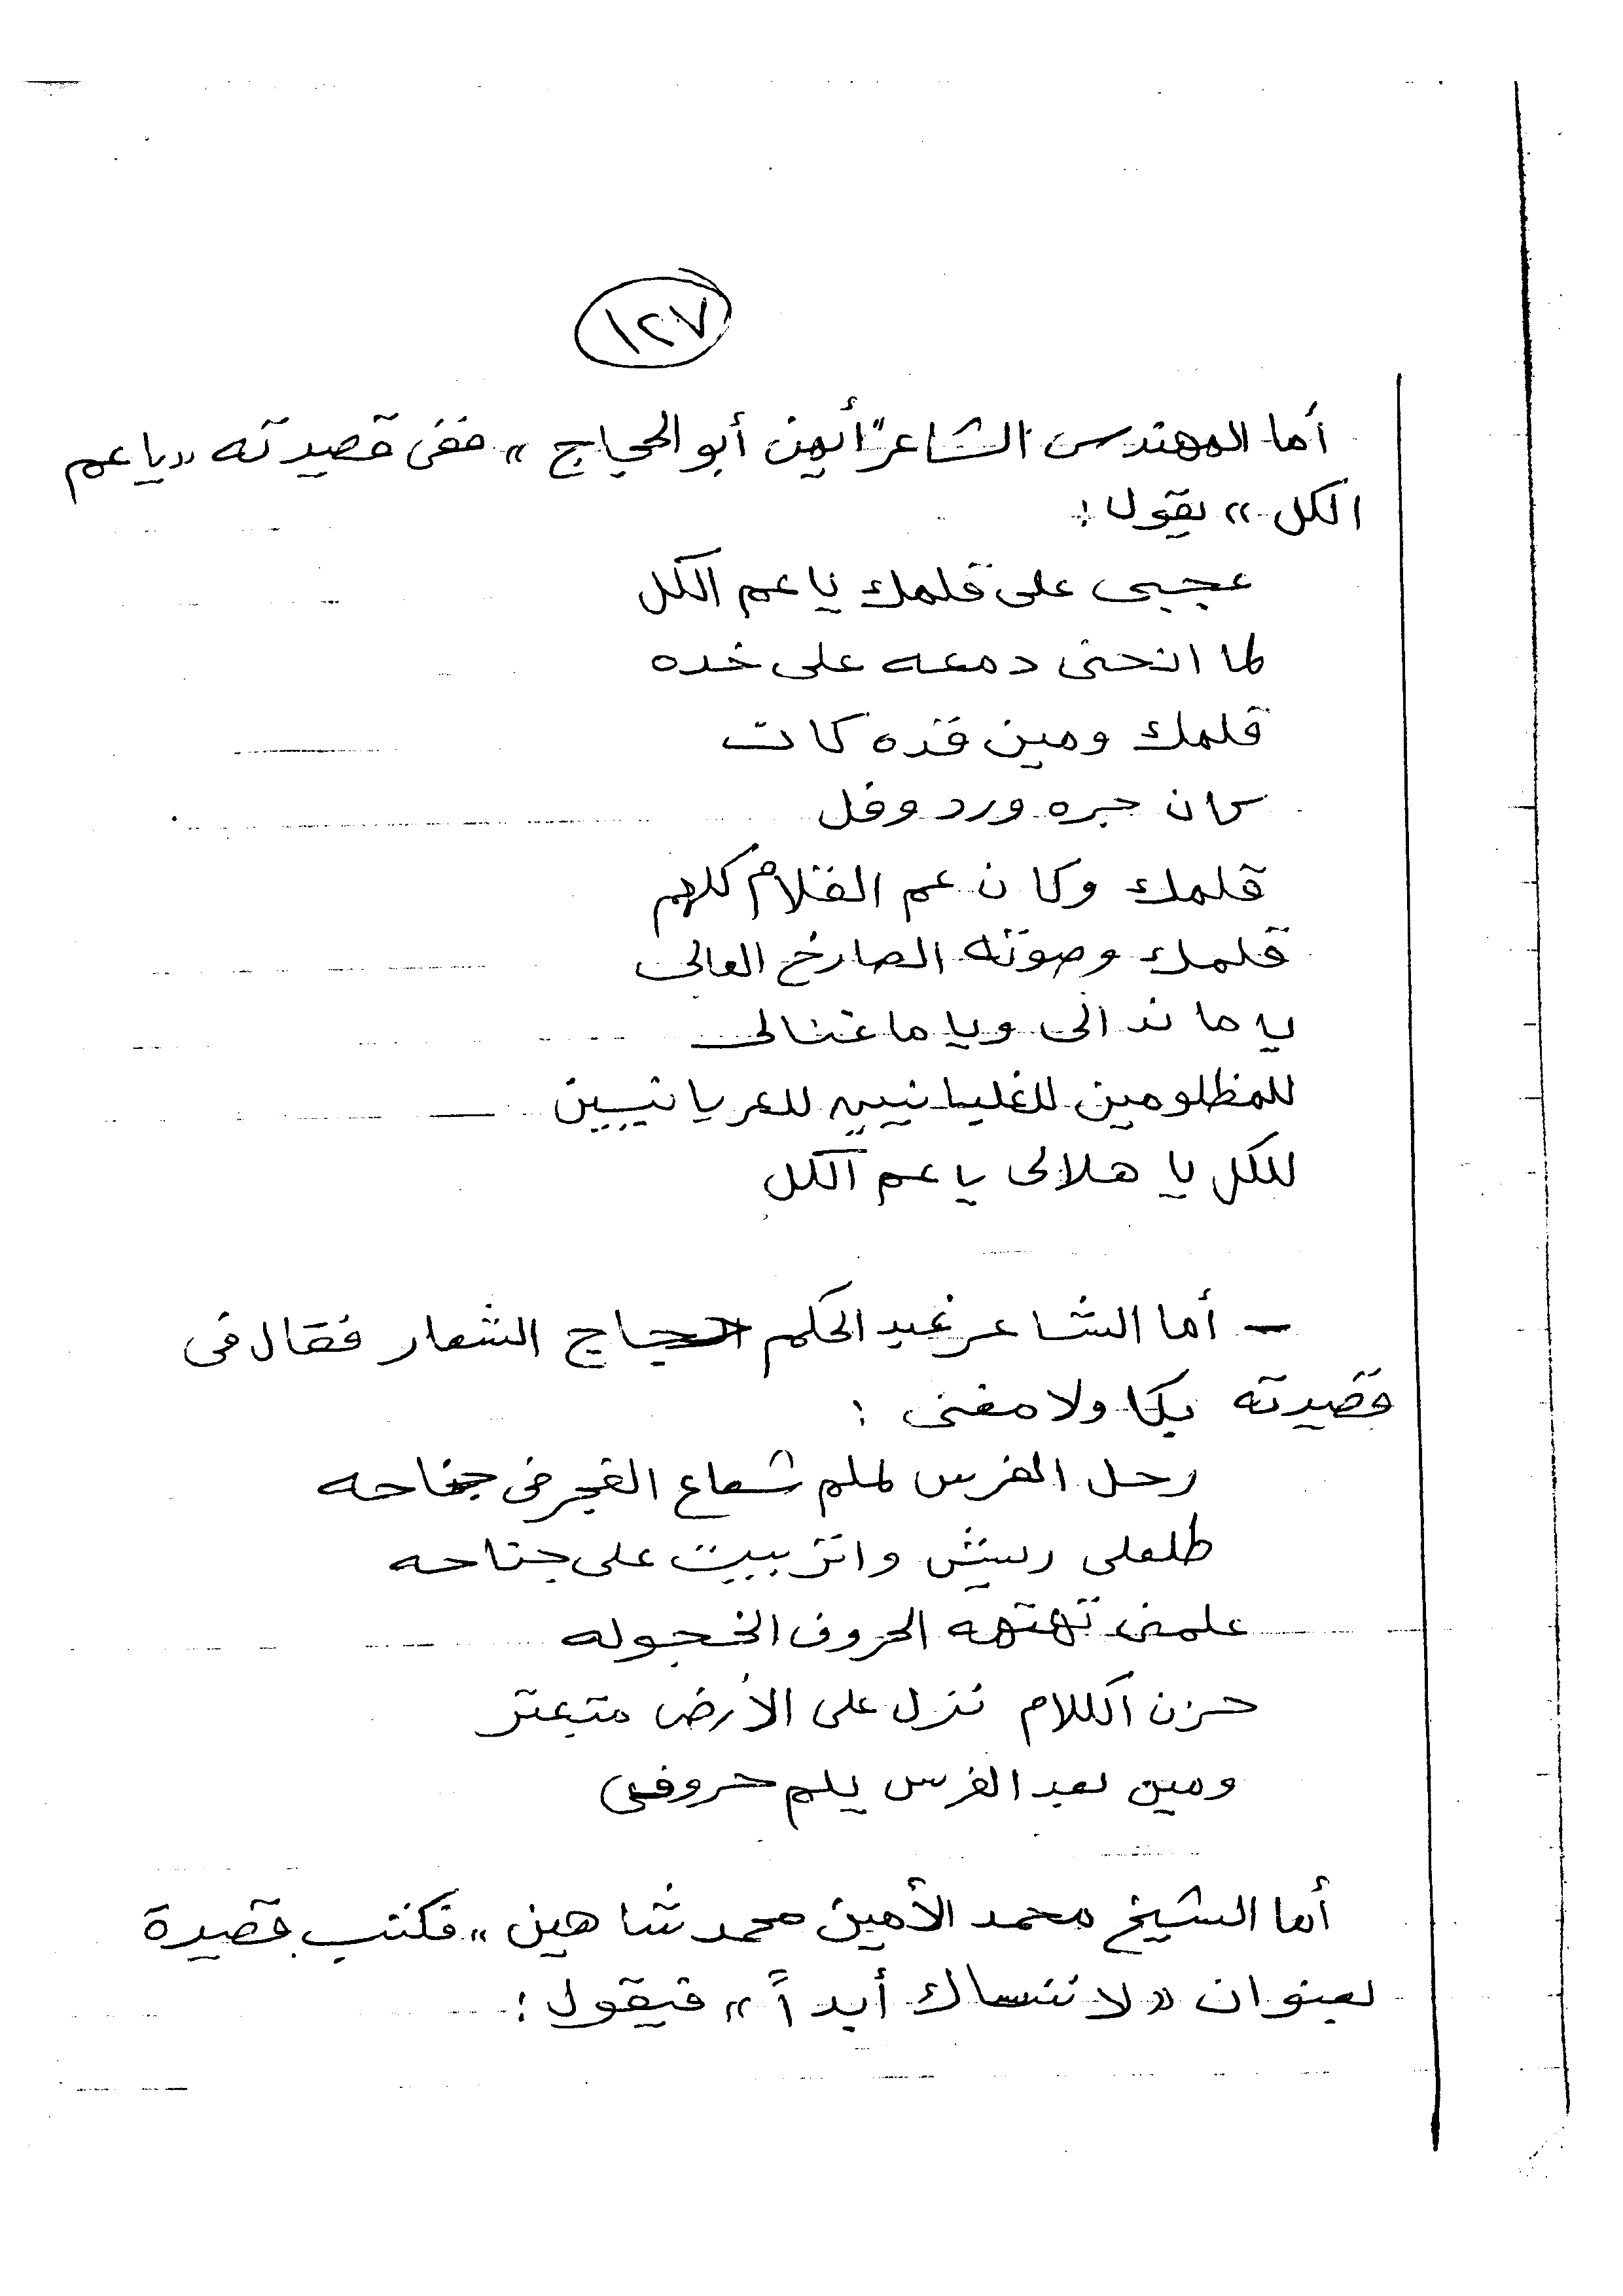 ١٢٧
أما المهندس الشاعر "أيمن أبو الحجاج" ففى قصيدته «ياعم
الكل» يقول:
عجبى على قلمك ياعم الكل
لما انحنى دمعه على خده
قلمك ومين قده كات
كان حبره ورد وفل
قلمك وكان عم القلام كلهم
قلمك وصوته الصارخ العالى
يا ما ندالى ويا ما غنالى
للمظلومين للغلبانيين للعريانيين
للكل يا هلالى ياعم الكل
- أما الشاعر عبد الحكم حجاج الشعار فقال فى
قصيدته بكا ولا مغنى :
رحل الفرس لملم شعاع الفجر فى جناحه
طلعلى ريش واتربيت على جناحه
علمنى تهتهه الحروف الخجوله
حزن الكلام نزل على الأرض متبعتر
ومين بعد الفرس يلم حروفى
أما الشيخ محمد الأمين محمد شاهين" فكتب قصيدة
بعنوان «لا ننساك أبداً» فيقول: